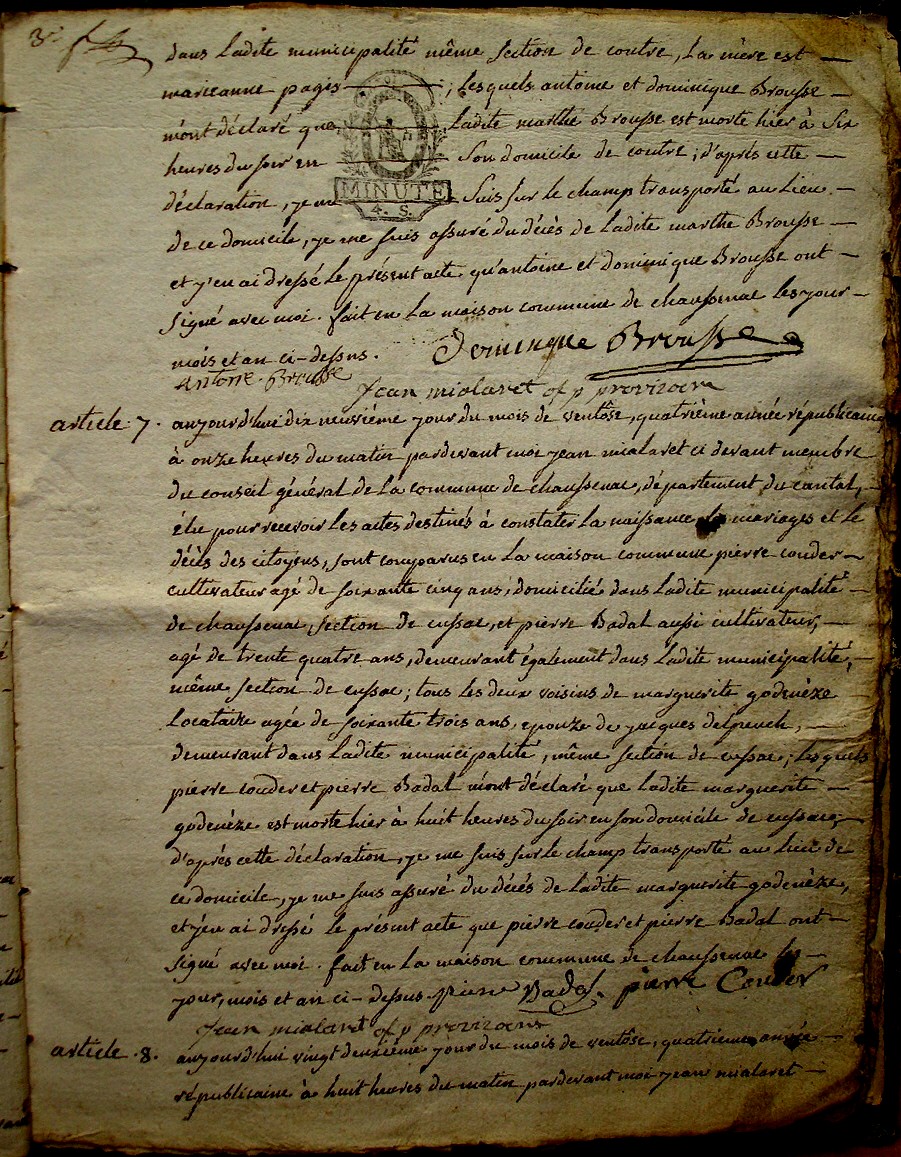 3e
dans Ladite municipalité même section de contre, La mère est
marieanne pagis ; lesquels antoine et dominique Brousse
m'ont déclaré que Ladite marthe Brousse est morte hier à six
heures du soir en son domicile de contre ; d'après cette
MINUTE
4. S.
déclaration, je me suis sur le champ transporté au Lieu
de ce domicile, je me suis assuré du décès de Ladite marthe Brousse
et j'en ai dressé le présent acte qu'antoine et dominique Brousse ont
signé avec moi. fait en La maison commune de chaussenac les jour
mois et an ci-dessus. Dominque Brousse
Antoine Brousse
Jean mialaret of p provizoire
article 7. aujourd'hui dix neuvième jour du mois de ventôse, quatrième année républicaine
à onze heures du matin pardevant moi jean mialaret ci devant membre
du conseil général de La commune de chaussenac, département du cantal,
élu pour recevoir Les actes destinés à constater La naissance les mariages et le
décès des citoyens, sont comparus en La maison commune pierre couder
cultivateur agé de soixante cinq ans, domicilié dans Ladite municipalité
de chaussenac, section de cussac, et pierre Badal aussi cultivateur,
agé de trente quatre ans, demeurant également dans Ladite municipalité,
même section de cussac ; tous les deux voisins de marguerite godenèze
Locataire agée de soixante trois ans, epouze de jacques delpeuch,
demeurant dans Ladite municipalité, même section de cussac ; lesquels
pierre couder et pierre Badal m'ont déclaré que Ladite marguerite
godenèze est morte hier à huit heures du soir en son domicile de cussac,
d'après cette déclaration, je me suis sur le champ transporté au Lieu de
ce domicile, je me suis assuré du décés de Ladite marguerite godenèze,
et j'en ai dressé le présent acte que pierre couder et pierre Badal ont
signé avec moi. fait en La maison commune de chaussenac les
jour, mois et an ci-dessus. piere Badal pierre Couder
Jean mialaret of p provizoire
article 8. aujourd'hui vingt deuxième jour du mois de ventôse, quatrieme année
républicaine à huit heures du matin pardevant moi jean mialaret